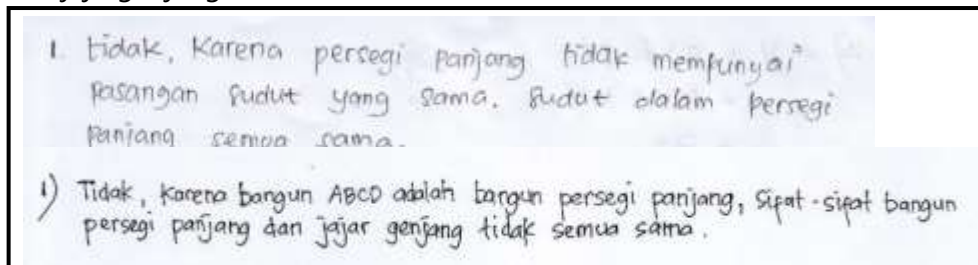 1. tidak, Karena persegi panjang tidak mempunyai
pasangan sudut yang sama. Sudut dalam persegi
panjang semua sama.
1) Tidak, Karena bangun ABCD adalah bangun persegi panjang, Sifat-sifat bangun
persegi panjang dan jajar genjang tidak semua sama.